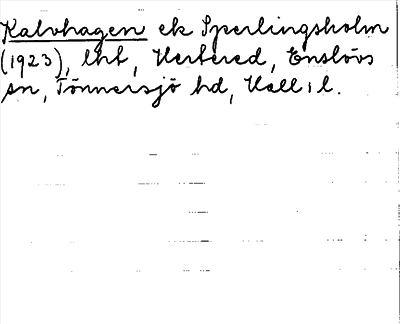 Kalvhagen ek Sperlingsholm
(1923), lht, Vertered, Enslövs
sn, Tönnersjö hd, Hall. l.